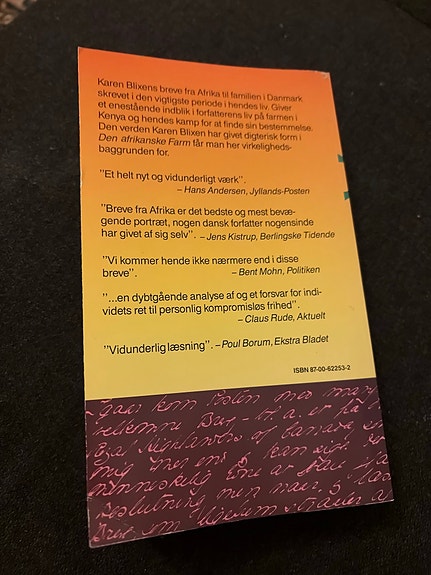 Karen Blixens breve fra Afrika til familien i Danmark
skrevet i den vigtigste periode i hendes liv. Giver
et enestående indblik i forfatterens liv på farmen i
Kenya og hendes kamp for at finde sin bestemmelse.
Den verden Karen Blixen har givet digterisk form i
Den afrikanske Farm får man her virkeligheds-
baggrunden for.
"Et helt nyt og vidunderligt værk".
– Hans Andersen, Jyllands-Posten
"Breve fra Afrika er det bedste og mest bevæ-
gende portræt, nogen dansk forfatter nogensinde
har givet af sig selv". – Jens Kistrup, Berlingske Tidende
"Vi kommer hende ikke nærmere end i disse
breve". – Bent Mohn, Politiken
"...en dybtgående analyse af og et forsvar for indi-
videts ret til personlig kompromisløs frihed".
– Claus Rude, Aktuelt
"Vidunderlig læsning". – Poul Borum, Ekstra Bladet
ISBN 87-00-62253-2
kom Posten med
velkomne
Highlanders of Canada
mig mer end
menneskelig
beslutning men naar